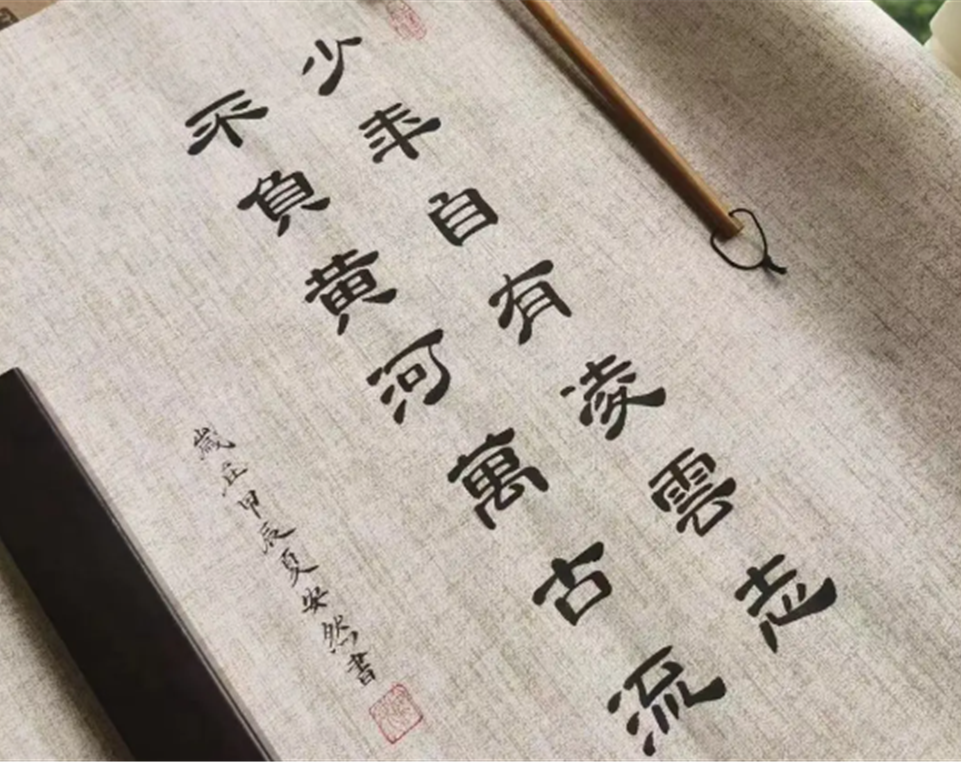 少年自有凌雲志
不負黄河萬古流
歲在甲辰夏安然書